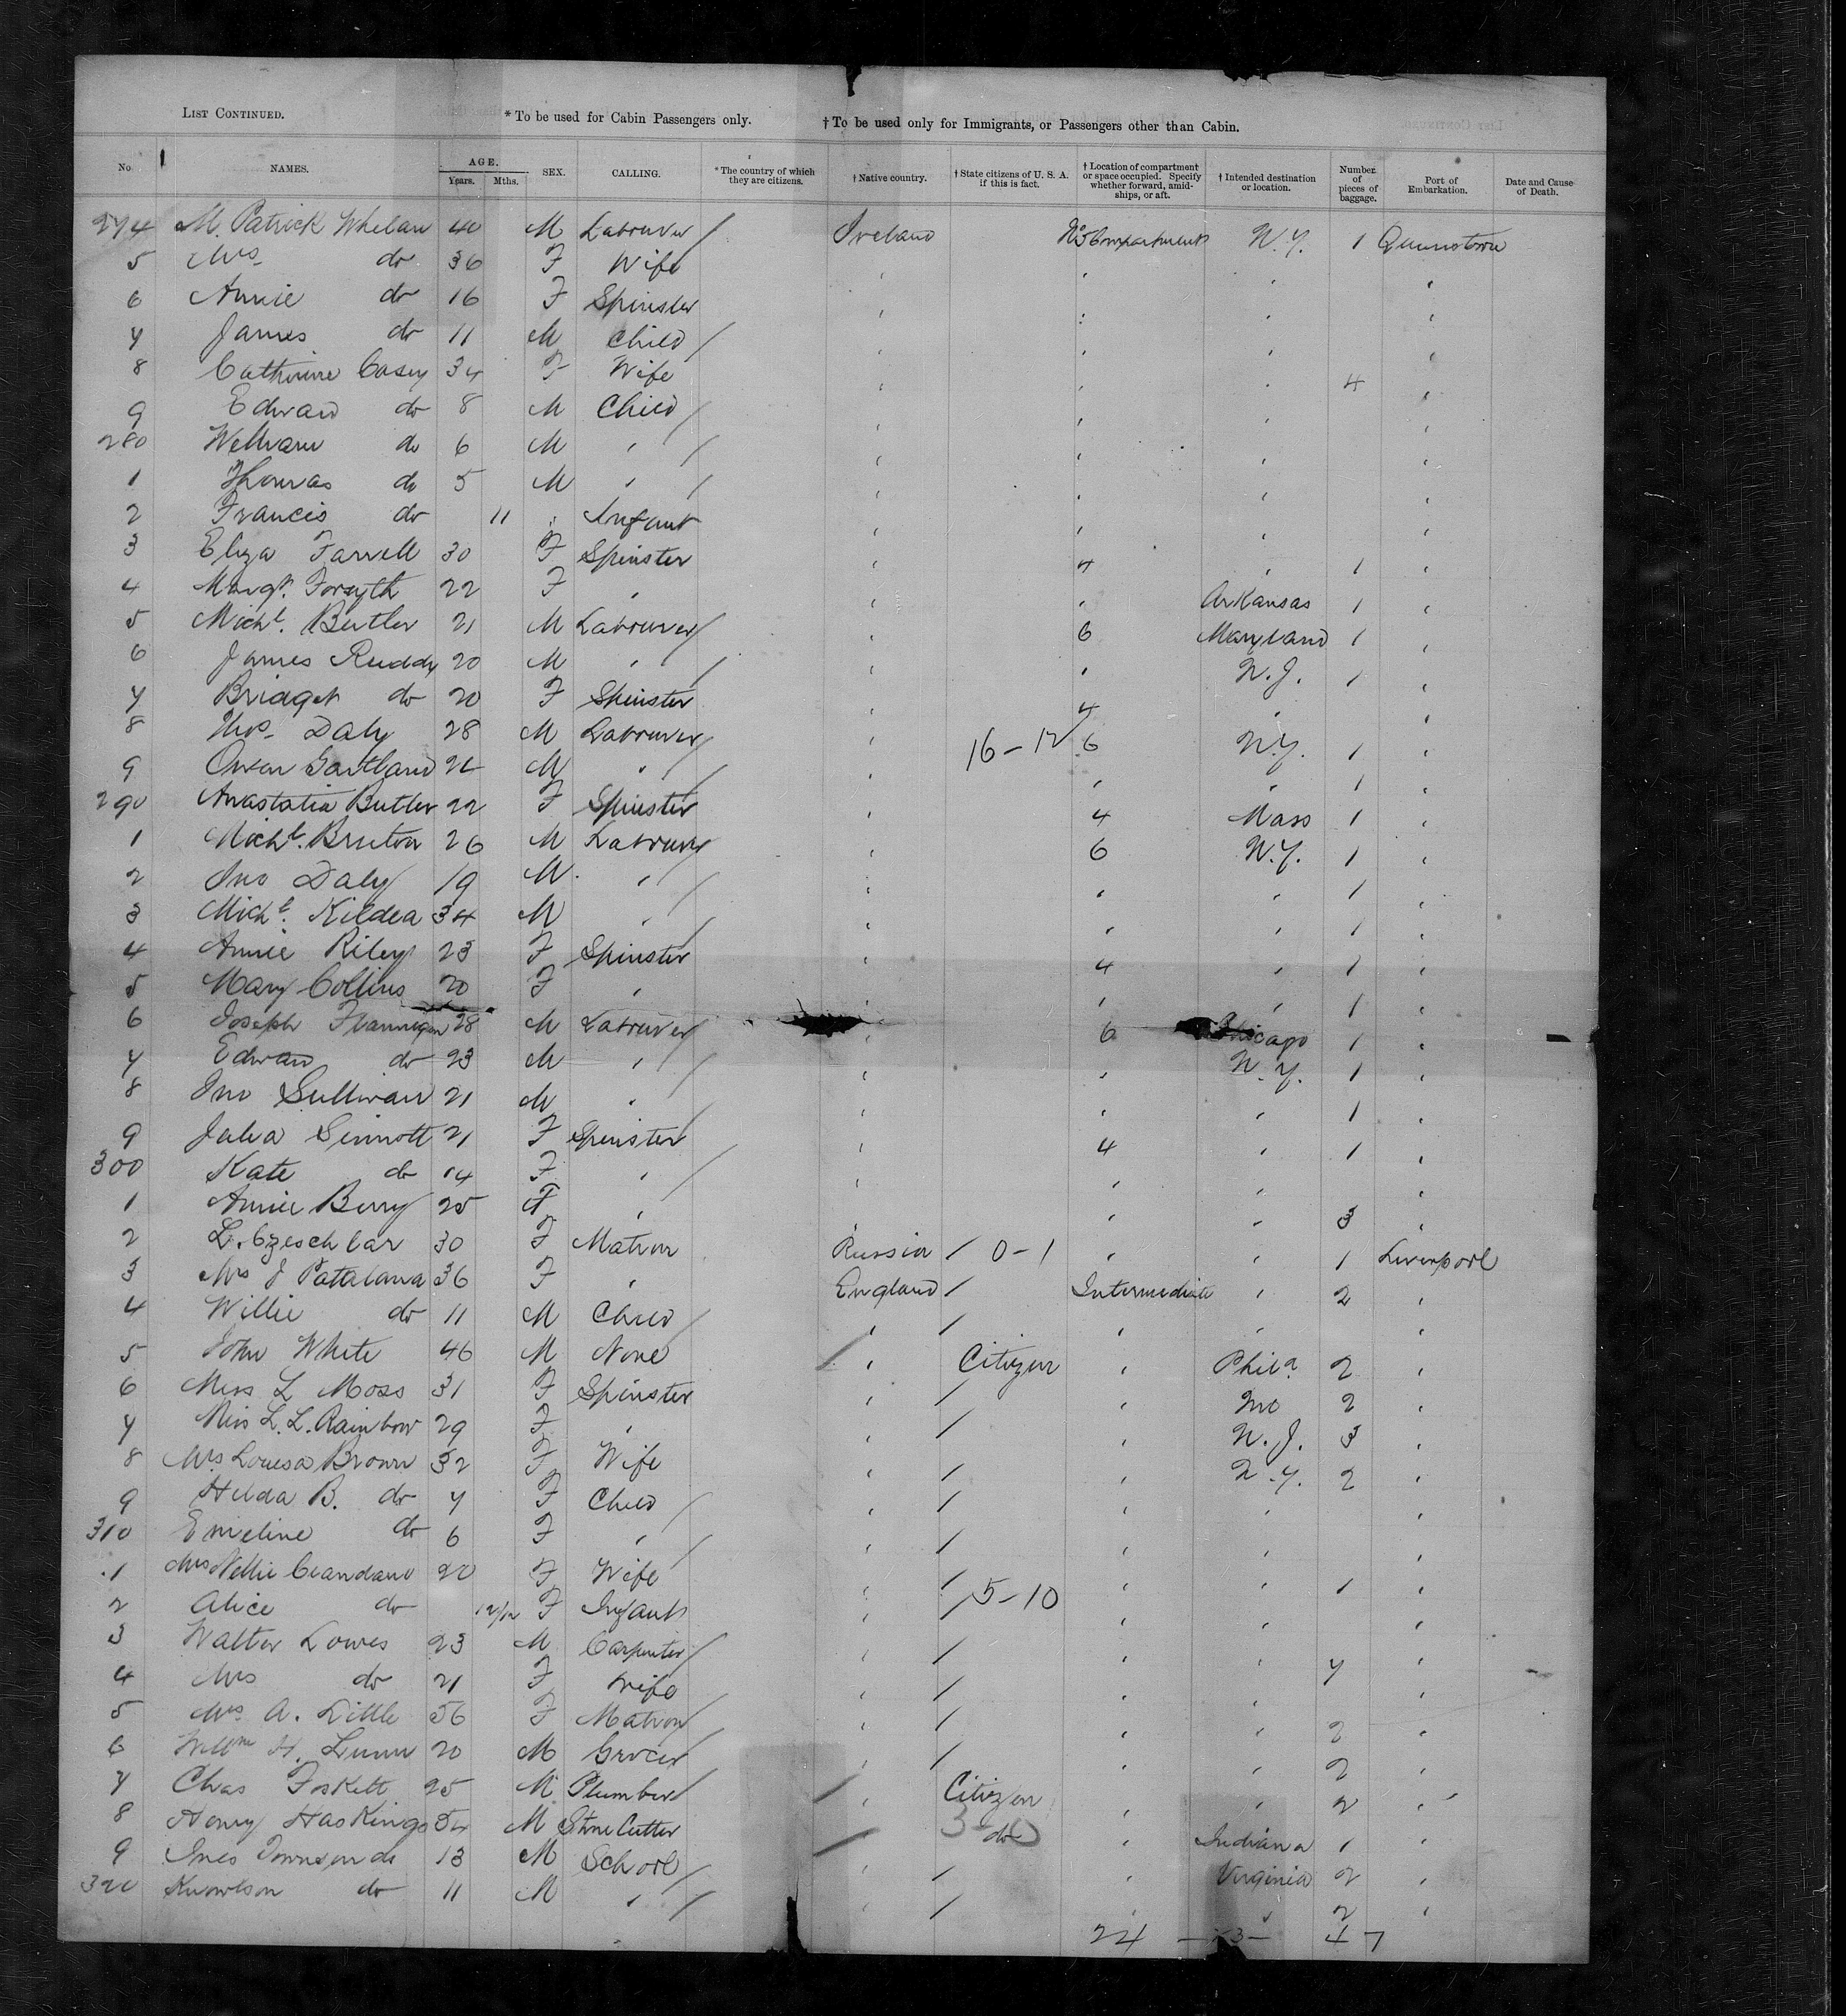 LIST CONTINUED. * To be used for Cabin Passengers only. † To be used only for Immigrants, or Passengers other than Cabin.
No. NAMES. AGE. Years. Mths. SEX. CALLING. * The country of which they are citizens. † Native country. † State citizens of U. S. A. if this is fact. † Location of compartment or space occupied. Specify whether forward, amidships, or aft. † Intended destination or location. Number of pieces of baggage. Port of Embarkation. Date and Cause of Death.
274 M. Patrick Whelan 40 M Labourer / Ireland No 5 Compartment N.Y. 1 Queenstown
5 Mrs do 36 F Wife ' ' ' '
6 Annie do 16 F Spinster ' ' ' '
7 James do 11 M Child / ' ' ' '
8 Catherine Casey 34 F Wife ' ' ' 4 '
9 Edward do 8 M Child / ' ' ' '
280 William do 6 M ' / ' ' ' '
1 Thomas do 5 M ' / ' ' ' '
2 Francis do 11 ' Infant ' ' ' '
3 Eliza Farrell 30 F Spinster ' 4 ' 1 '
4 Margt. Forsyth 22 F ' ' ' Arkansas 1 '
5 Michl. Butler 21 M Labourer / ' 6 Maryland 1 '
6 James Ruddy 20 M ' / ' ' N.J. 1 '
7 Bridget do 20 F Spinster ' 4 ' '
8 Thos Daly 28 M Labourer / ' 16-12 6 N.Y. 1 '
9 Owen Gartland M ' / ' ' ' 1 '
290 Anastatia Butler 22 F Spinster ' 4 Mass 1 '
1 Michl. Bruton 26 M Labourer / ' 6 N.Y. 1 '
2 Jno Daly 19 M ' / ' ' ' 1 '
3 Michl. Kildea 34 M ' / ' ' ' 1 '
4 Annie Riley 23 F Spinster ' 4 ' 1 '
5 Mary Collins 20 F ' ' ' ' 1 '
6 Joseph Flannigan 28 M Labourer / ' 6 Chicago 1 '
7 Edward do 23 M ' / ' ' N.Y. 1 '
8 Jno Sullivan 21 M ' / ' ' ' 1 '
9 Julia Sinnott 21 F Spinster ' 4 ' 1 '
300 Kate do 14 F ' / ' ' ' '
1 Annie Berry 25 F ' ' ' ' 3 '
2 L. Czeschlar 30 F Matron Russia / 0-1 ' ' 1 Liverpool
3 Mrs J Pattalana 36 F ' England / Intermediate ' 2 '
4 Willie do 11 M Child / ' / ' ' '
5 John White 46 M None / ' Citizen ' Phila. 2 '
6 Miss L Moss 31 F Spinster ' / ' Mo 2 '
7 Miss L. L. Rainbow 29 F ' ' / ' N.J. 3 '
8 Mrs Louesa Brown 32 F Wife ' / ' N.Y. 2 '
9 Hilda B. do 7 F Child / ' / ' ' '
310 Emeline do 6 F ' / ' / ' ' '
1 Mrs Nellie 20 F Wife ' / ' ' 1 '
2 Alice do 12/12 F Infant ' / 5-10 ' ' '
3 Walter Lowes 23 M Carpenter / ' / ' ' 7 '
4 Mrs do 21 F Wife ' / ' ' '
5 Mrs A. Little 56 F Matron / ' / ' ' 2 '
6 Willm H. Lunn 20 M Grocer / ' / ' ' 2 '
7 Chas Foskett 25 M Plumber / / ' Citizen ' ' 2 '
8 Henry Haskings M Stone Cutter / ' do ' Indiana 1 '
9 Ines Townsends 13 M School / ' / ' Virginia 2 '
320 Knowlson do 11 M ' / ' / ' ' 2 '
24 - 3 - 47